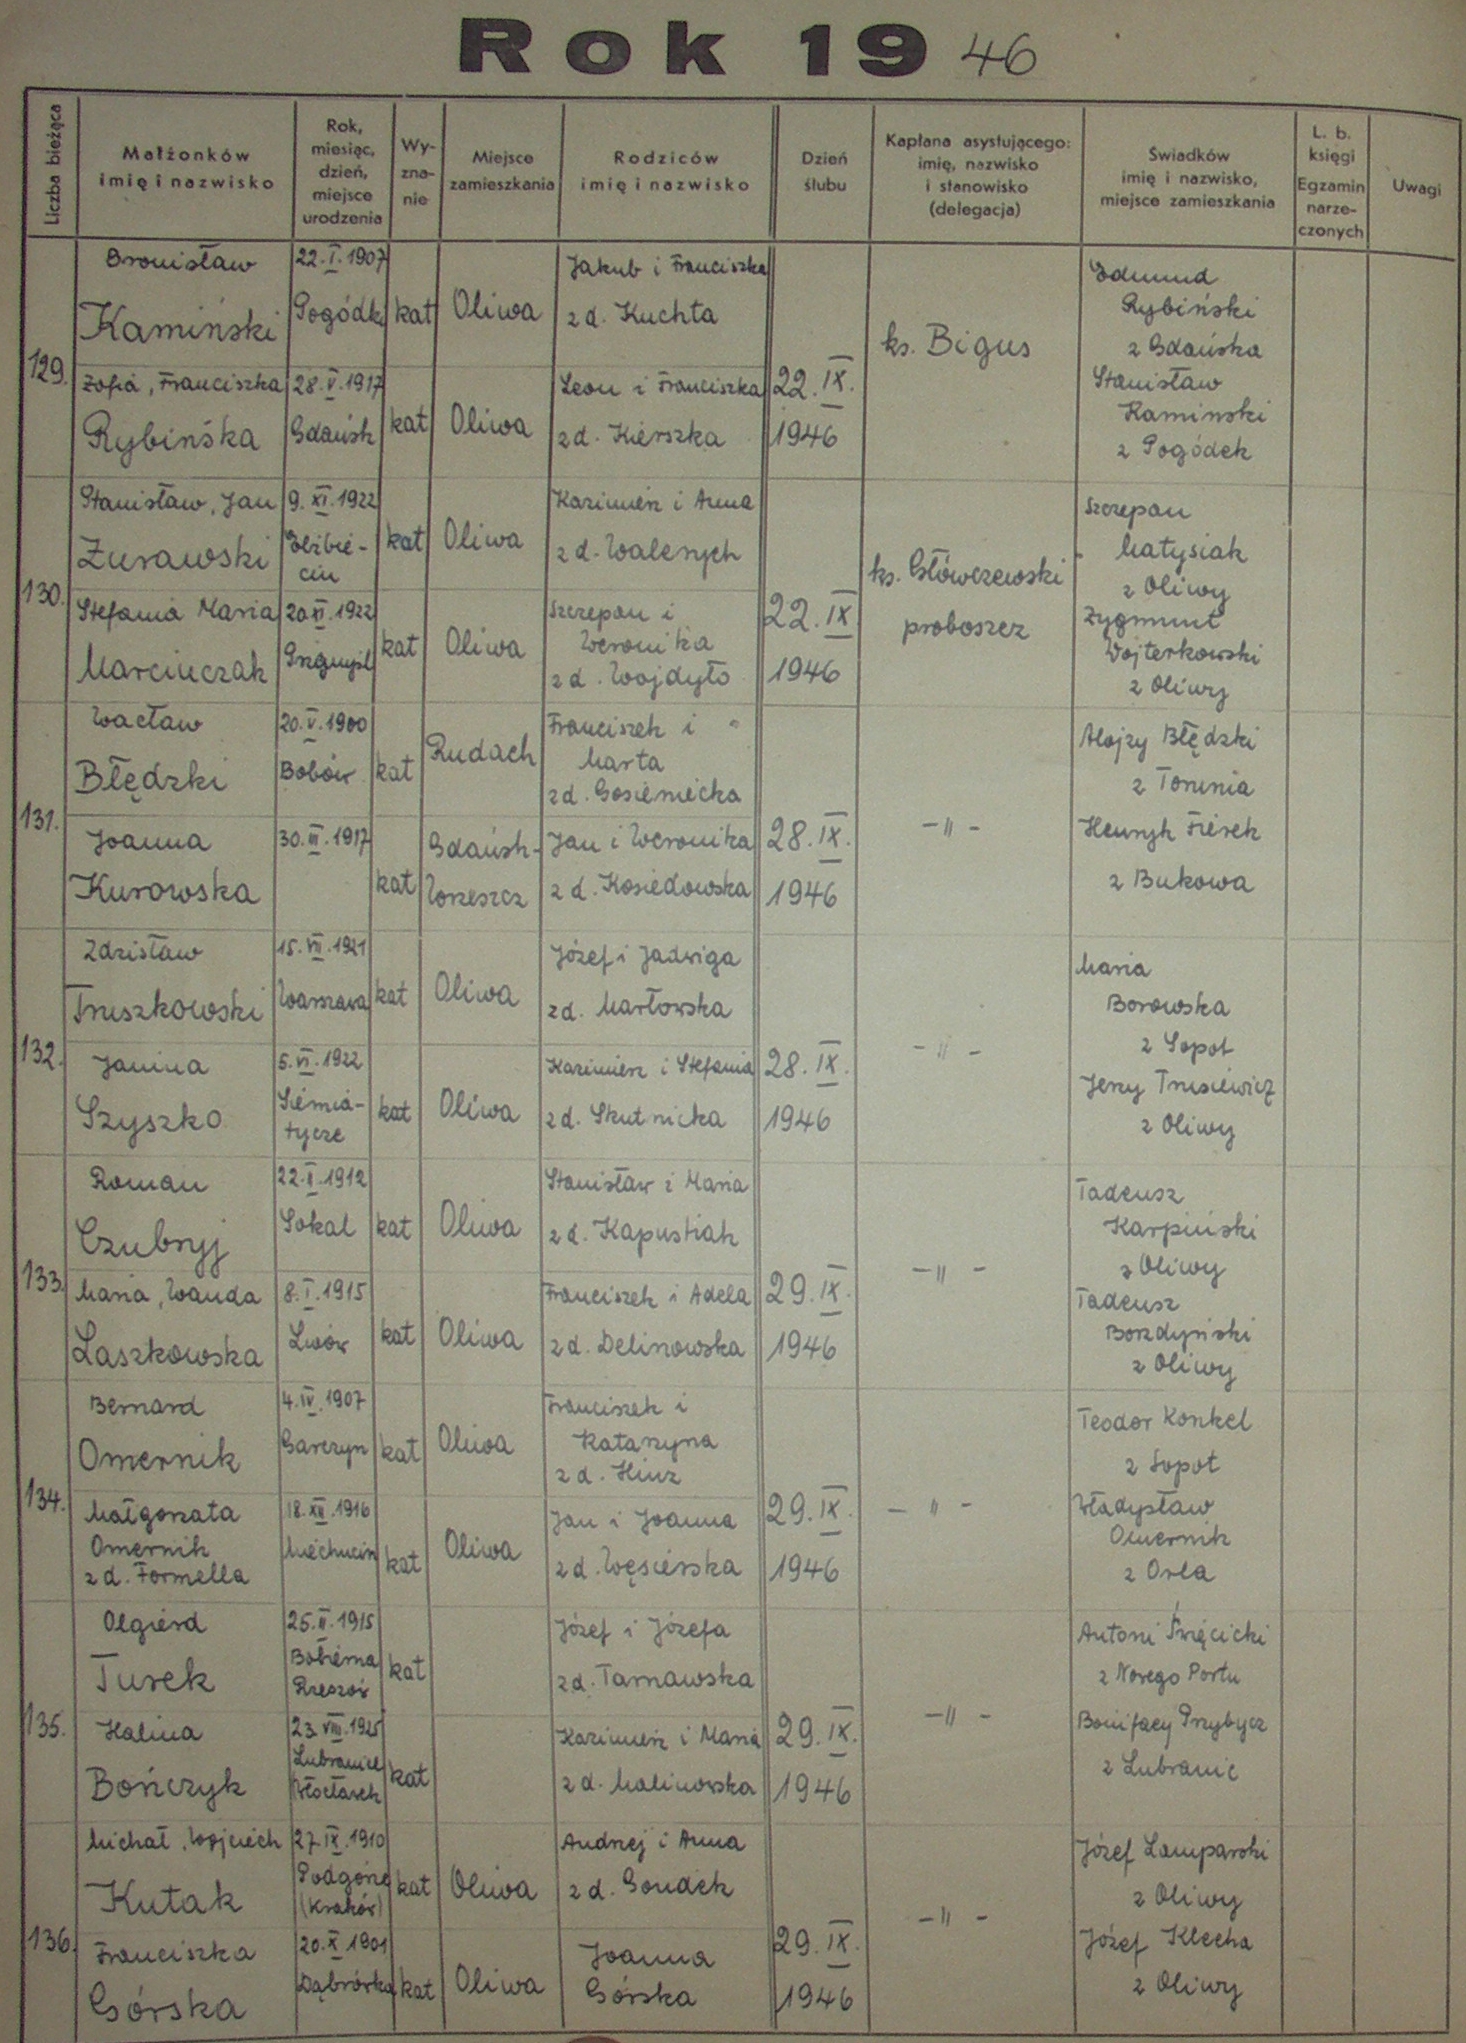 Rok 1946
Liczba bieżąca
Małżonków
imię i nazwisko
Rok,
miesiąc,
dzień,
miejsce
urodzenia
Wy-
zna-
nie
Miejsce
zamieszkania
Rodziców
imię i nazwisko
Dzień
ślubu
Kapłana asystującego:
imię, nazwisko
i stanowisko
(delegacja)
Świadków
imię i nazwisko,
miejsce zamieszkania
L. b.
księgi
Egzamin
narze-
czonych
Uwagi
129.
Bronisław
Kamiński
22.I.1907
Pogódki
kat
Oliwa
Jakub i Franciszka
z d. Kuchta
Zofia, Franciszka
Rybińska
28.V.1917
Gdańsk
kat
Oliwa
Leon i Franciszka
z d. Kierszka
22.IX.
1946
ks. Bigus
Edmund
Rybiński
z Gdańska
Stanisław
Kaminski
z Pogódek
130.
Stanisław, Jan
Żurawski
9.XI.1922
Elżbie-
cin
kat
Oliwa
Kazimierz i Anna
z d. Walenych
Stefania Maria
Marcinczak
20.XI.1922
Przemyśl
kat
Oliwa
Szczepan i
Weronika
z d. Wojdyło
22.IX
1946
ks. Główczewski
proboszcz
Szczepan
Matysiak
z Oliwy
Zygmunt
Wojterkowski
z Oliwy
131.
Wacław
Błędzki
20.V.1900
Bobów
kat
Rudach
Franciszek i
Marta
z d. Gosieniecka
Joanna
Kurowska
30.III.1917
kat
Gdańsk-
Wrzeszcz
Jan i Weronika
z d. Kosiedowska
28.IX.
1946
-"-
Alojzy Błędzki
z Torunia
Henryk Fierek
z Bukowa
132.
Zdzisław
Truszkowski
15.VII.1921
Warszawa
kat
Oliwa
Józef i Jadwiga
z d. Markowska
Janina
Szyszko
5.VI.1922
Siemia-
tycze
kat
Oliwa
Kazimierz i Stefania
z d. Skutnicka
28.IX.
1946
-"-
Maria
Borowska
z Sopot
Jerzy Trusiewicz
z Oliwy
133.
Roman
Czubryj
22.II.1912
Sokal
kat
Oliwa
Stanisław i Maria
z d. Kapustiak
Maria, Wanda
Laszkowska
8.I.1915
Lwów
kat
Oliwa
Franciszek i Adela
z d. Delinowska
29.IX.
1946
-"-
Tadeusz
Karpiński
z Oliwy
Tadeusz
Borzdyński
z Oliwy
134.
Bernard
Omernik
4.IV.1907
Garczyn
kat
Oliwa
Franciszek i
Katarzyna
z d. Hinz
Małgorzata
Omernik
z d. Formella
18.XII.1916
Miechucin
kat
Oliwa
Jan i Joanna
z d. Węsierska
29.IX.
1946
-"-
Teodor Konkel
z Sopot
Władysław
Omernik
z Orla
135.
Olgierd
Turek
25.II.1915
Bohemia
Rzeszów
kat
Józef i Józefa
z d. Tarnawska
Halina
Bończyk
23.VIII.1925
Lubraniec
Włocławek
kat
Kazimierz i Maria
z d. Malinowska
29.IX.
1946
-"-
Antoni Święcicki
z Nowego Portu
Bonifacy Przybysz
z Lubranic
136.
Michał, Wojciech
Kutak
27.IX.1910
Podgórze
(Kraków)
kat
Oliwa
Andrzej i Anna
z d. Goudek
Franciszka
Górska
20.X.1901
Dąbrówka
kat
Oliwa
Joanna
Górska
29.IX.
1946
-"-
Józef Lamparski
z Oliwy
Józef Klecha
z Oliwy